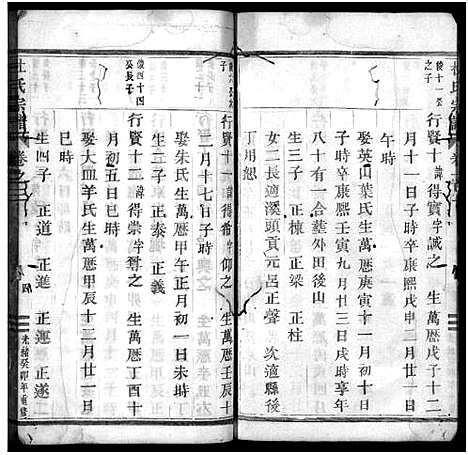 杜氏宗譜
後十一公
之子
行賢十一諱得寶字誠之 生萬厯戊子十二
月十一日子時卒康熙戊申三月廿一日
娶英山葉氏生萬厯庚寅十一月初十日
子時卒康熙壬寅九月廿三日戌時享年
八十有三合塟外田後山
生三子 正棟 正梁 正柱
女二長適溪頭貢元呂正聲 次適縣後
丁用恕
子
行賢十一諱得希字仰之 生萬厯壬辰十
二月十七日子時
娶朱氏生萬厯甲午正月初一日未時
生二子 正泰 正義
儉四十四
公長子
行賢十二諱得崇字尊之 生萬厯丁酉十
月初五日巳時
娶大皿羊氏生萬厯甲辰十二月廿一日
巳時
生四子 正道 正進 正運 正遂
杜氏宗譜 卷之
光緒癸卯年重修